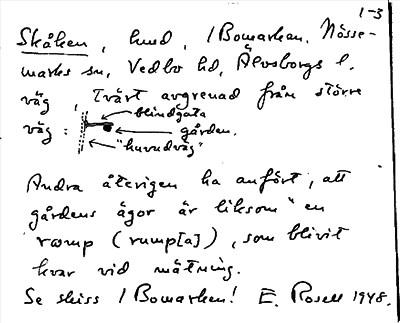 1-3
Skåken, hmd, /Bomarken, Nösse-
marks sn, Vedbo hd, Älvsborgs l.
väg, Tvärt avgrenad från större
väg: blindgata
gården.
"huvudväg"
Andra återigen ha anfört, att
gårdens ägor är liksom "en
rœmp (rump[a]), som blivit
kvar vid mätning.
Se skiss /Bomarken! E. Rosell 1948.